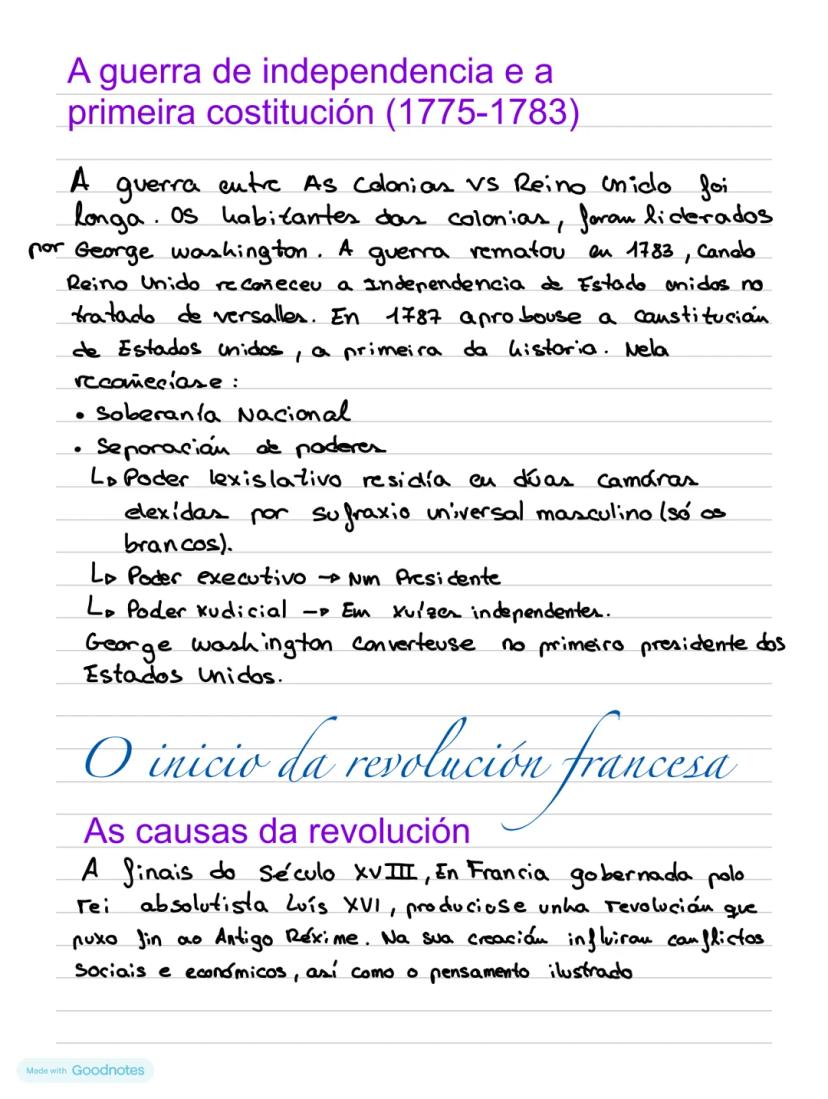 A guerra de independencia e a
primeira costitución (1775-1783)
A guerra entre As Colonias VS Reino Unido foi
longa. Os habitantes das colonias, foron liderados
por George washington. A guerra rematou en 1783, cando
Reino Unido recoñeceu a Independencia de Estado unidos no
tratado de versalles. En 1787 aprobouse a constitución
de Estados Unidos, a primeira da historia. Nela
recoñecíase:
• Soberanía Nacional
• Separación de poderes
↳ Poder lexislativo residía en dúas camáras
elexídas por sufraxio universal masculino (só os
brancos).
↳ Poder executivo → Nun Presidente
↳ Poder xudicial → En xuízes independentes.
George washington converteuse no primeiro presidente dos
Estados Unidos.
O inicio da revolución francesa
As causas da revolución
A finais do século XVIII, En Francia gobernada polo
rei absolutista Luís XVI, produciuse unha revolución que
puxo fin ao Antigo Réxime. Na sua creación influiron conflictos
sociais e económicos, así como o pensamento ilustrado
Made with Goodnotes